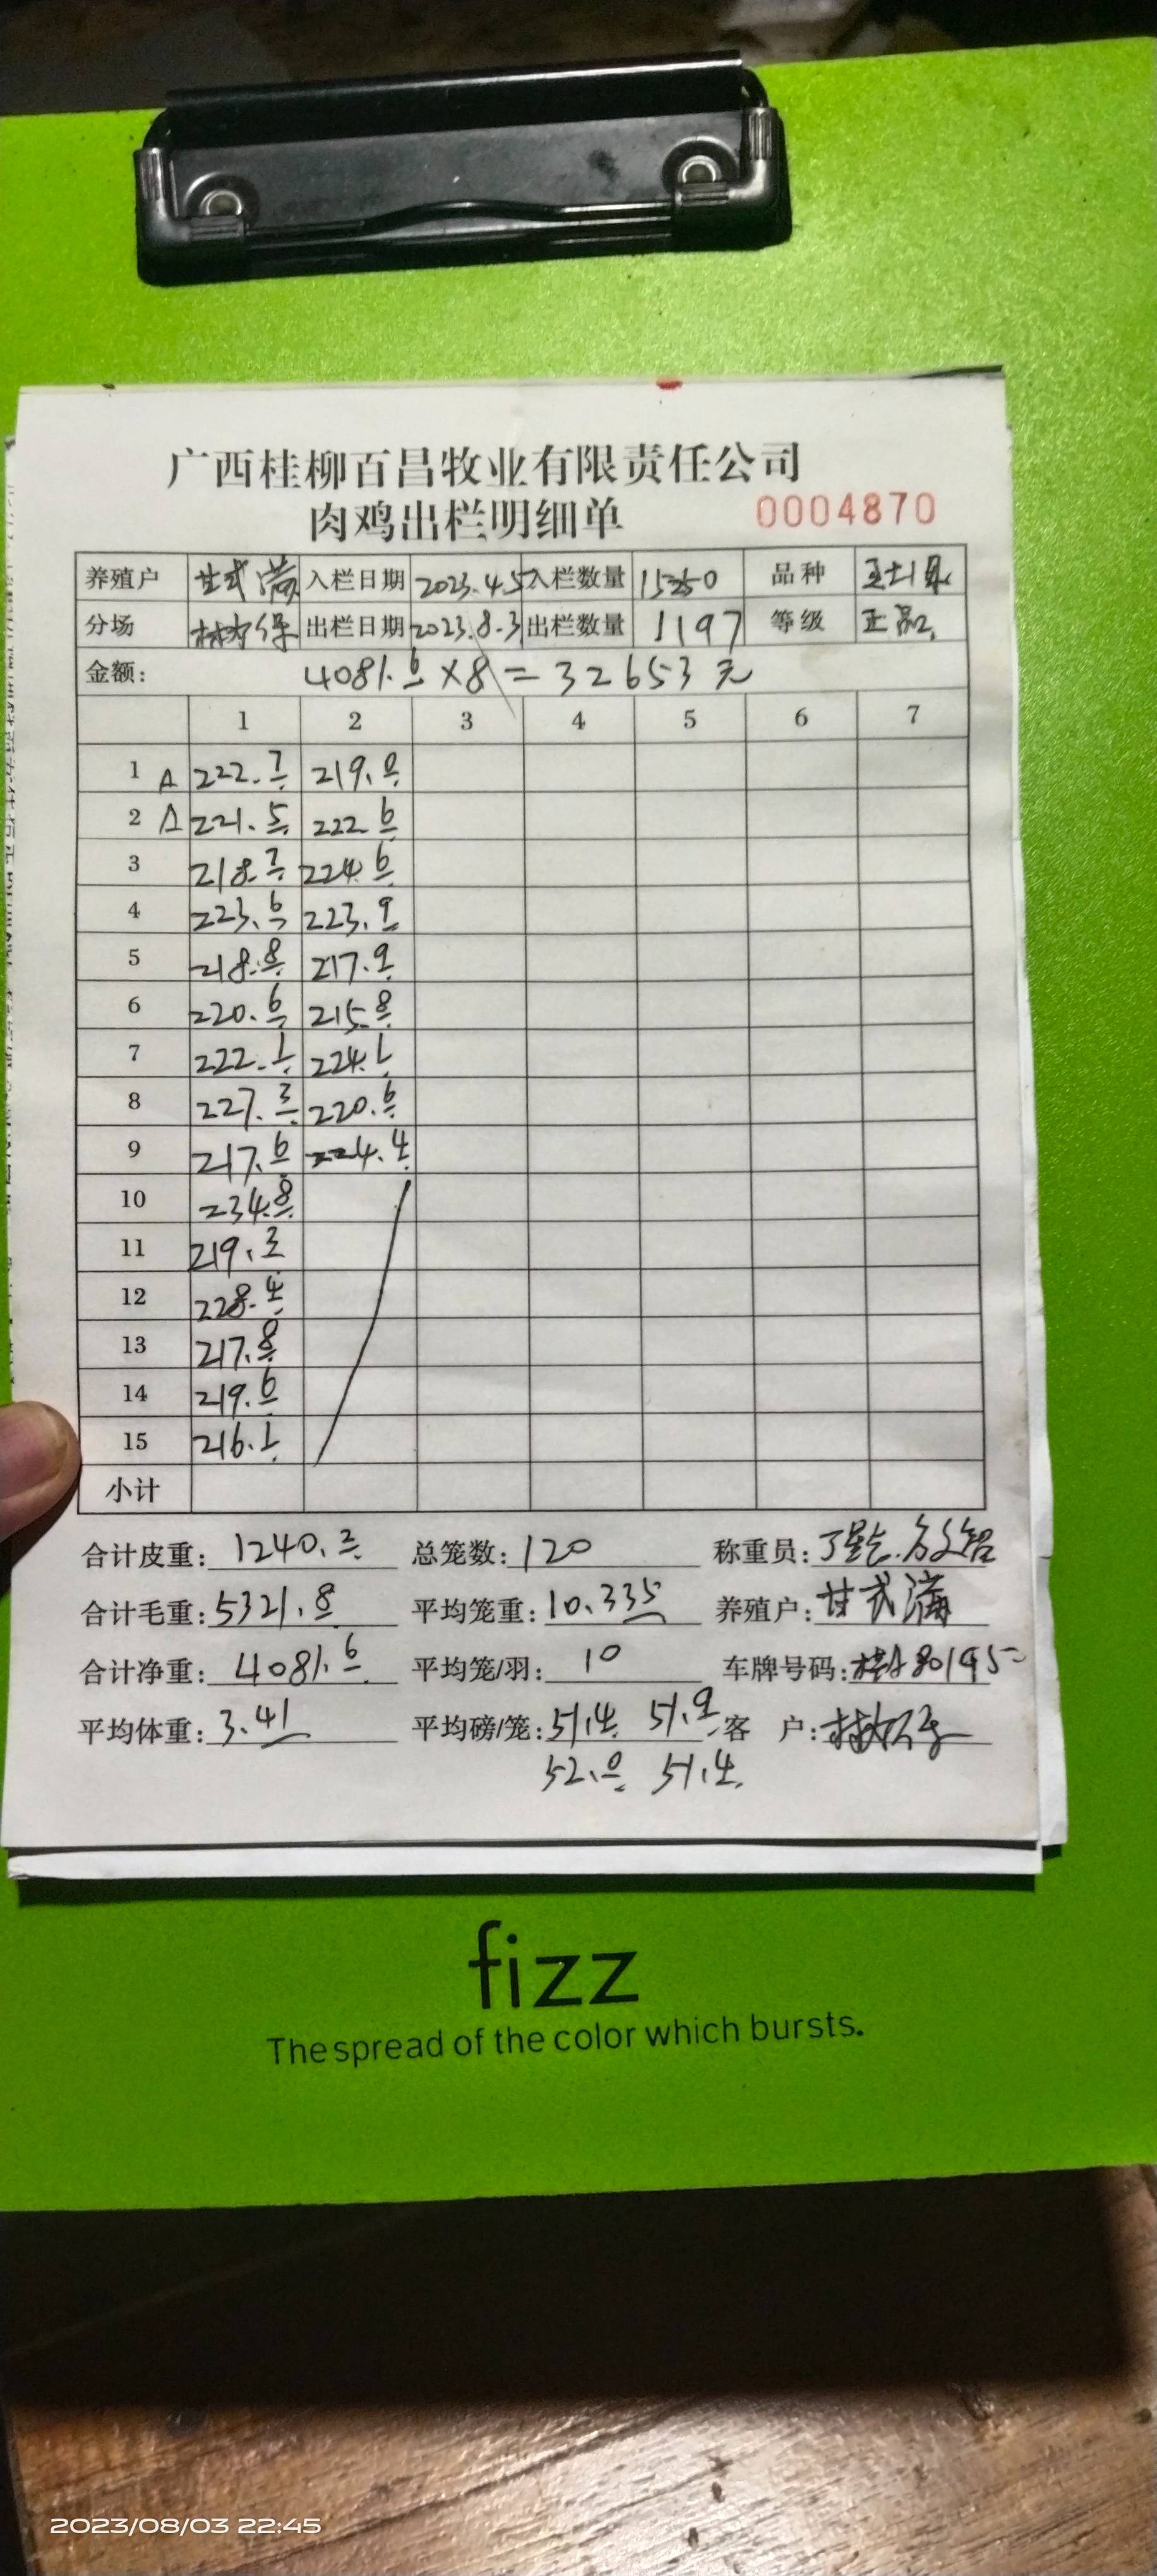 广西桂柳百昌牧业有限责任公司
肉鸡出栏明细单 0004870
养殖户 甘武满 入栏日期 2023.4.5 入栏数量 15250 品种
分场 出栏日期 2023.8.3 出栏数量 1197 等级 正品
金额: 4081.6×8=32653元
1 2 3 4 5 6 7
1 A 222.7 219.0
2 A 221.5 222.6
3 218.7 224.6
4 223.6 223.9
5 218.8 217.9
6 220.6 215.8
7 222.1 224.1
8 227.3 220.6
9 217.6 224.4
10 234.8
11 219.3
12 228.4
13 217.8
14 219.6
15 216.1
小计
合计皮重: 1240.2 总笼数: 120 称重员:
合计毛重: 5321.8 平均笼重: 10.335 养殖户: 甘武满
合计净重: 4081.6 平均笼/羽: 10 车牌号码:
平均体重: 3.41 平均磅/笼: 51.4 51.9 客 户:
52.0 51.4
fizz
The spread of the color which bursts.
2023/08/03 22:45